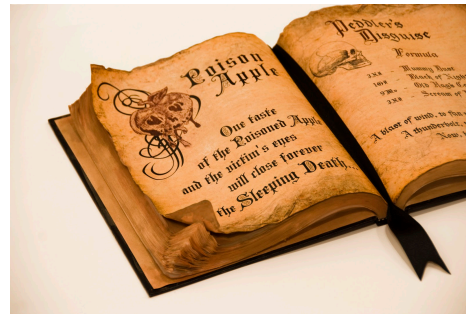 Poison
Apple
One taste
of the Poisoned Apple
and the victim's eyes
will close forever
the Sleeping Death...
Peddler's
Disguise
Formula
Mummy Dust
Black of Night
Old Hag's
Scream of
A blast of wind, to fan
A thunderbolt,
Now,